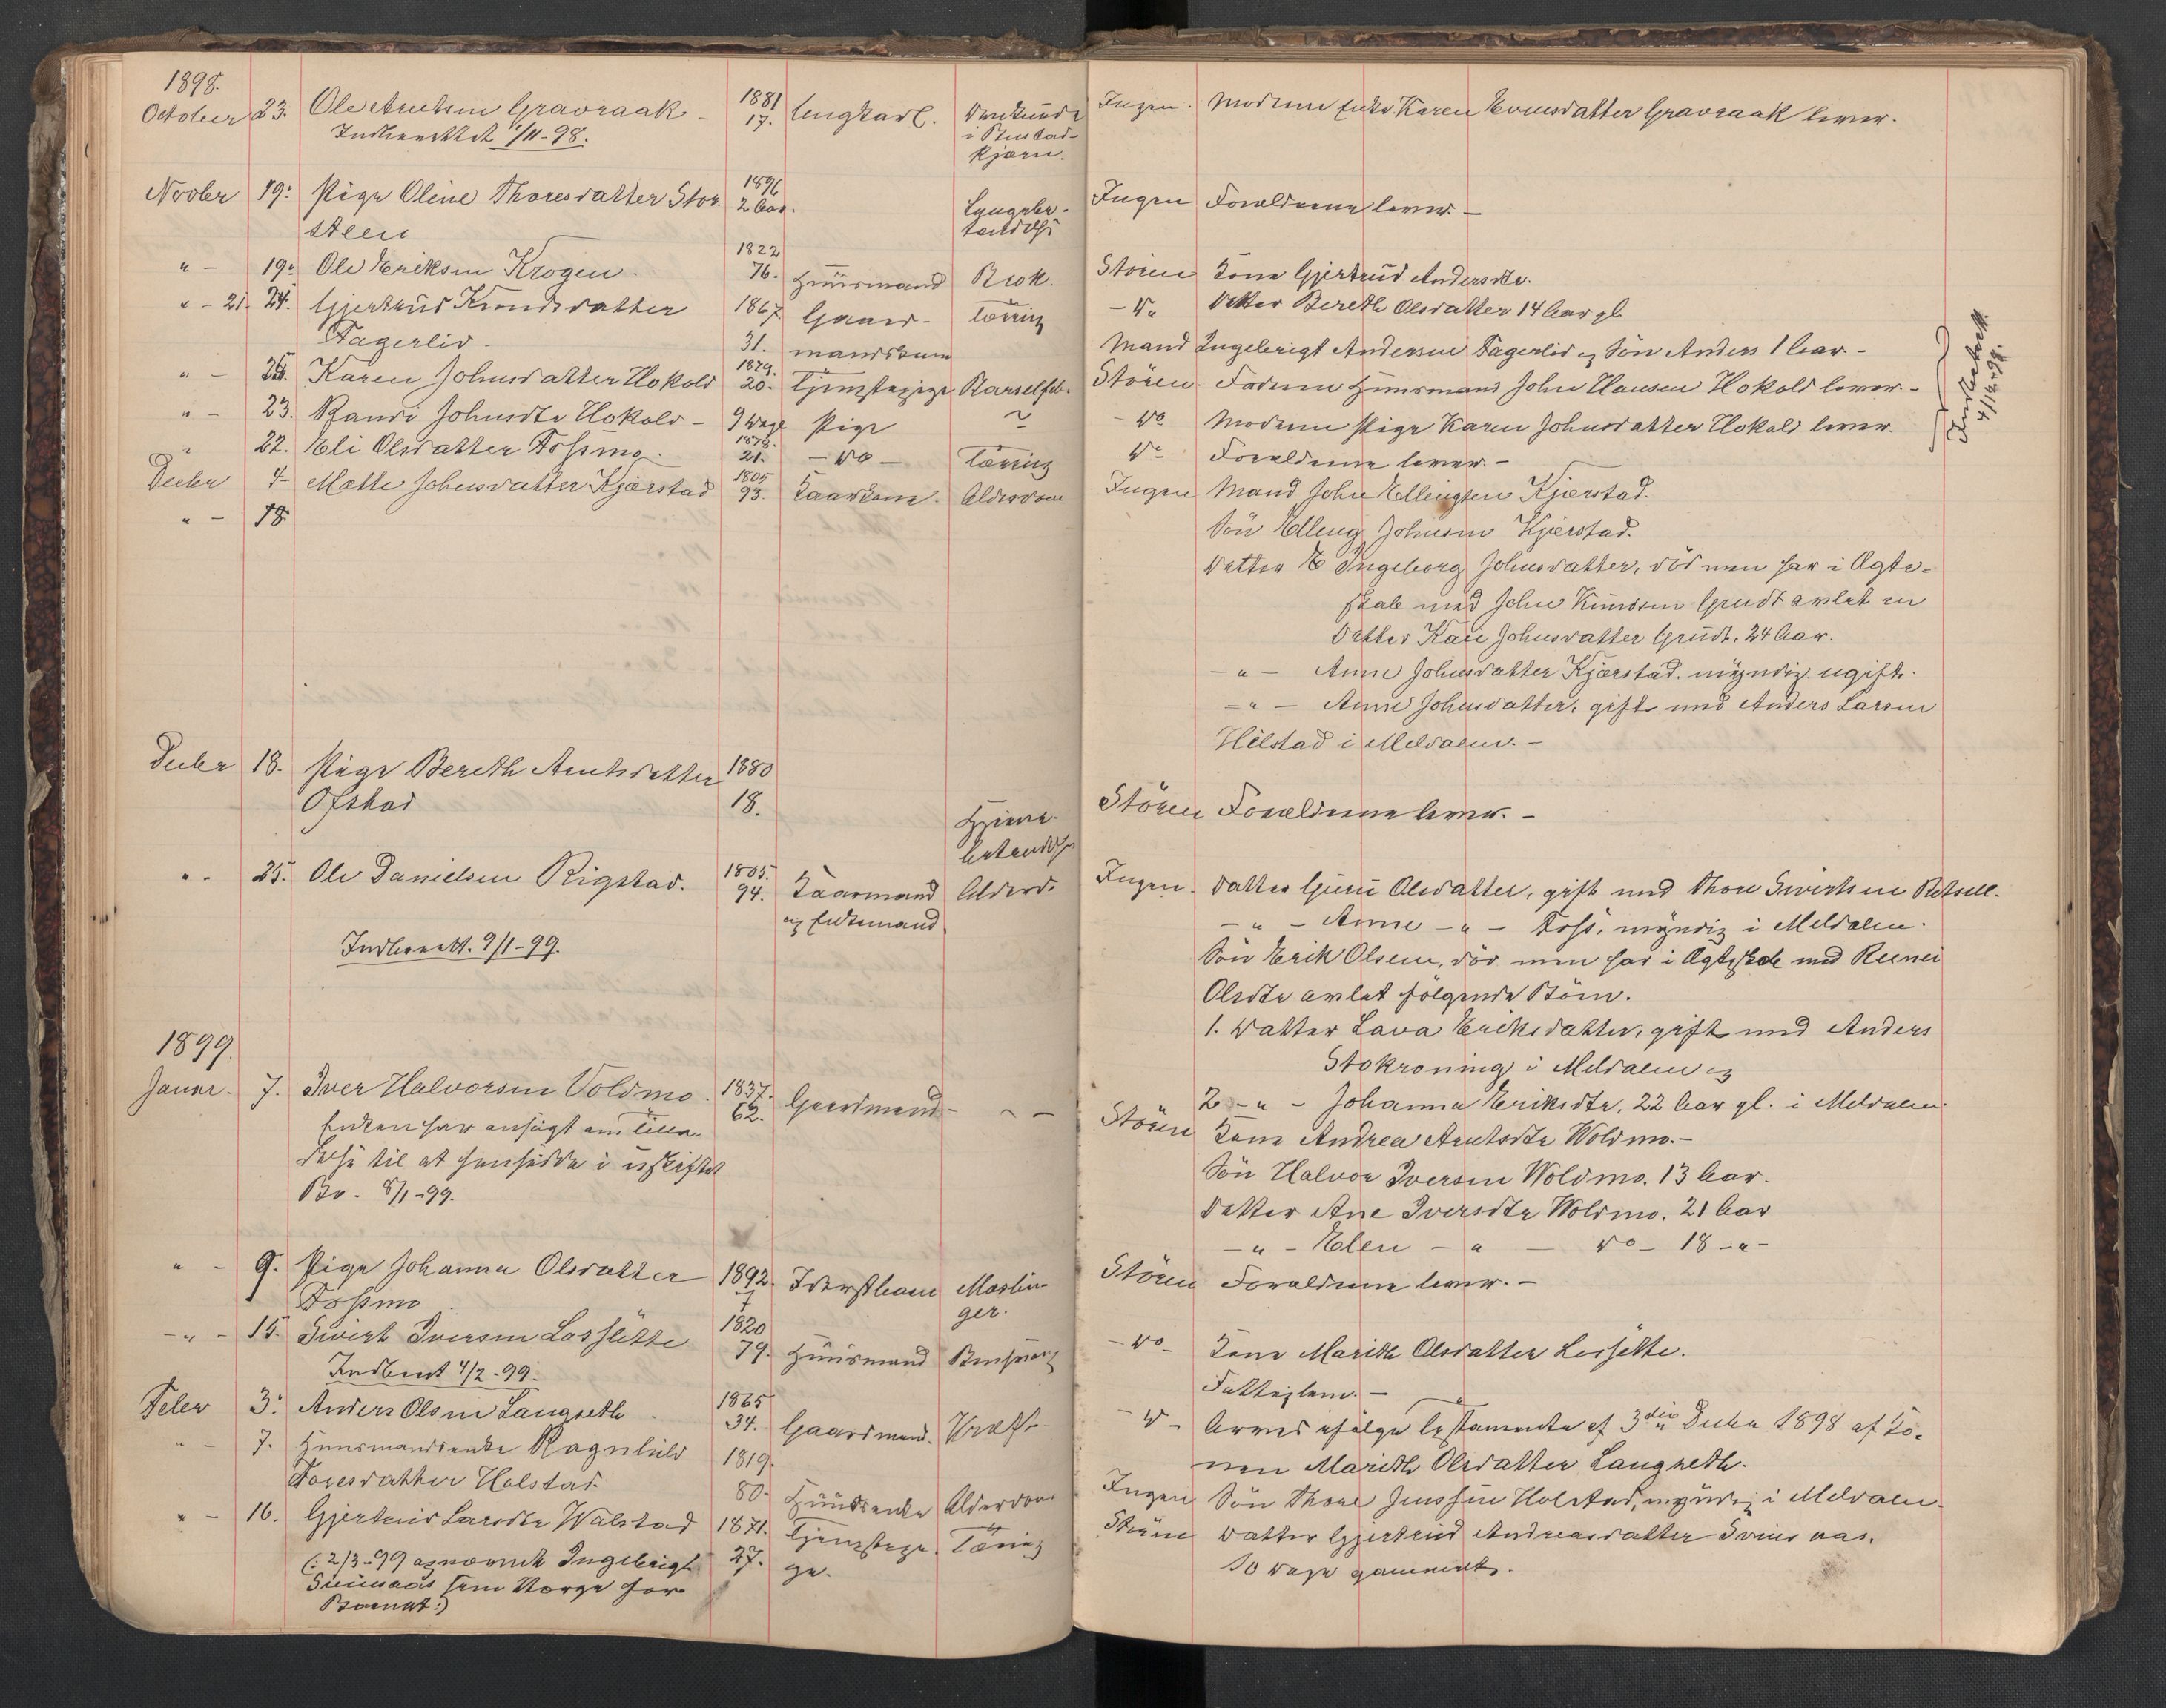 1898.
October 23. Ole Arntsen Gravraak - 1881 17. Ungkarl. Druknede
Indberettet 1/11-98. i Bustad-
kjærn.
Novbr 19. Pige Oline Thoresdatter Stor- 1896 2 Aar. Lungebe-
steen tændelse
" - 19. Ole Eriksen Krogen. 1822 76. Huusmand Brok.
" - 21. 24. Gjertrud Knudsdatter 1867 Gaard- Tæring
Fagerlid. 31. mandskone
" - 25. Karen Johnsdatter Hokold 1879. 20. Tjenstepige Barselfeb.
" - 23. Randi Johnsdtr Hokold - 9 Dage Pige
" 22. Eli Olsdatter Fossmo. 1878. 21. - Do - Tæring
Decbr 4 - Mætte Johnsdatter Kjærstad 1805 93. Kaarkone. Alderdom
" - 18.
Decbr 18. Pige Bereth Arntsdatter 1880
Ofstad 18. Hjerne-
betændelse
" - 25. Ole Danielsen Rigstad. 1805. 94. Kaarmand Alderd.
og Enkemand.
Indberett. 9/1-99.
1899.
Januar. 7. Iver Halvorsen Voldmo. 1837. 62. Gaardmand -
Enken har ansøgt om Tilla-
delse til at hensidde i uskiftet
Bo. 8/1-99.
" - 9. Pige Johanna Olsdatter 1892. Meslin-
Fossmo 7 ger.
- " - 15. Sivert Iversen Losslette 1820 79. Huusmand
Indberet 4/2-99.
Febr 3. Anders Olsen Langseth 1865 34. Gaardmand. Kræft
" - 7. Huusmandsenke Ragnhild 1819.
Toresdatter Holstad. 80. Huusenke Alderdom
" - 16. Gjertrud Larsdtr Walstad 1871. 27. Tjenstepi- Tæring
ge.
(: 2/3-99 opnævnt Ingebrigt
som Værge for
Barnet :)
Ingen. Moderen Enke Karen Evensdatter Gravraak lever.
Ingen Forældrene lever. -
Støren Kone Gjertrud Andersdtr.
- Do Datter Bereth Olsdatter 14 Aar gl.
Mand Ingebrigt Andersen Fagerlid og Søn Anders 1 Aar. -
Støren. Faderen Huusmand John Hansen Hokold lever. -
- Do Moderen Pige Karen Johnsdatter Hokold lever.
Do Forældrene lever. -
Indberett. 4/12-98.
Ingen Mand John Ellingsen Kjærstad.
Søn Elling Johnsen Kjærstad.
Datter Ingeborg Johnsdatter, død men har i Ægte-
skab med John Knudsen Grudt avlet en
Datter Kari Johnsdatter Grudt, 24 Aar.
- " - Anne Johnsdatter Kjærstad. myndig. ugift.
- " - Anne Johnsdatter, gift med Anders Larsen
Hilstad i Meldalen. -
Støren Forældrene lever. -
Ingen. Datter Guru Olsdatter, gift med Thore Sivertsen
- " - Anne - " - Foss, myndig i Meldalen.
Søn Erik Olsen, død men har i Ægteskab med
Olsdtr avlet følgende Børn.
1. Datter Lava Eriksdatter, gift med Anders
Stokroning i Meldalen og
2 - " - Johanna Eriksdtr, 22 Aar gl. i Meldalen
Støren Kone Andrea Arntsdtr Woldmo. -
Søn Halvor Iversen Woldmo. 13 Aar.
Datter Ane Iversdtr Woldmo. 21 Aar
- " - Elen - " - Do - 18 - " -
Støren Forældrene lever. -
- Do - Kone Marith Olsdatter Losslette.
Fattiglem. -
- D - Arves ifølge Testamente af 3die Decbr 1898 af Ko-
nen Marith Olsdatter Langseth.
Ingen Søn Thore Jenssen Holstad, myndig i Meldalen.
Støren Datter Gjertrud Andreasdatter
10 Dage gammelt.